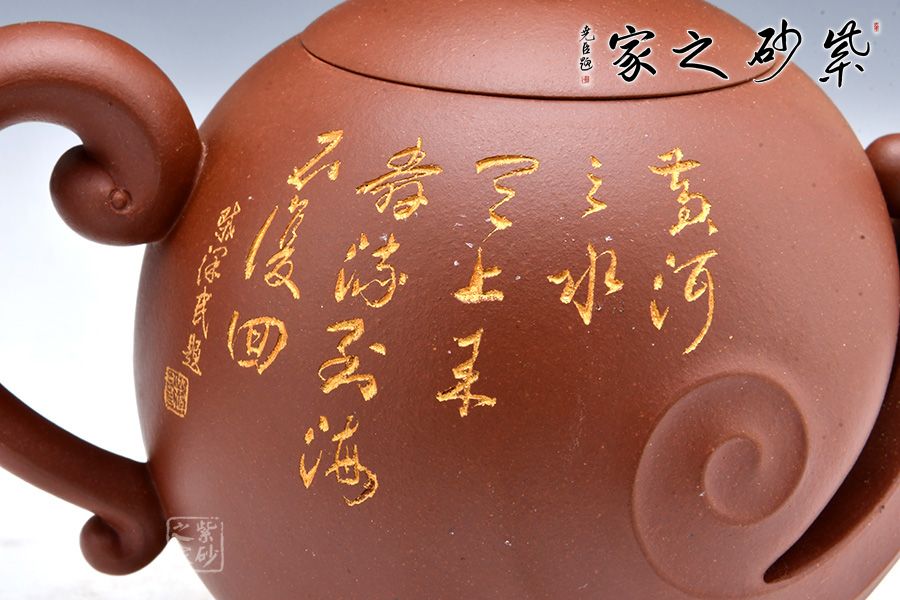 紫砂之家
尧臣题
黄河
之水
天上来
奔流到海
不復回
民題
紫砂
之家